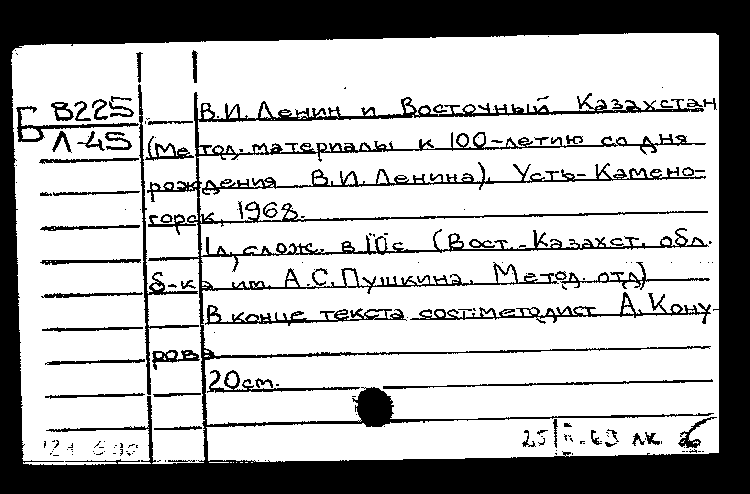 Б В225
Л-45
В.И. Ленин и Восточный Казахстан
(Метод. материалы к 100-летию со дня
рождения В.И. Ленина). Усть-Камено-
горск, 1968.
1л, слож. в 10с (Вост.-Казахст. обл.
б-ка им. А.С. Пушкина. Метод. отд)
В конце текста сост: методист А. Кону-
рова
20см.
25 | II - 69 ЛК